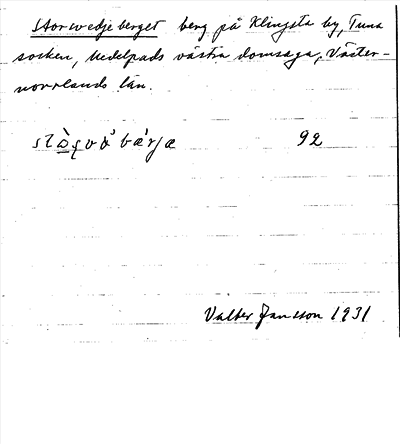 Storsvedjeberget berg på Klingsta by, Tuna
socken, Medelpads västra domsaga, Väster-
norrlands län.
92
Valter Jansson 1931